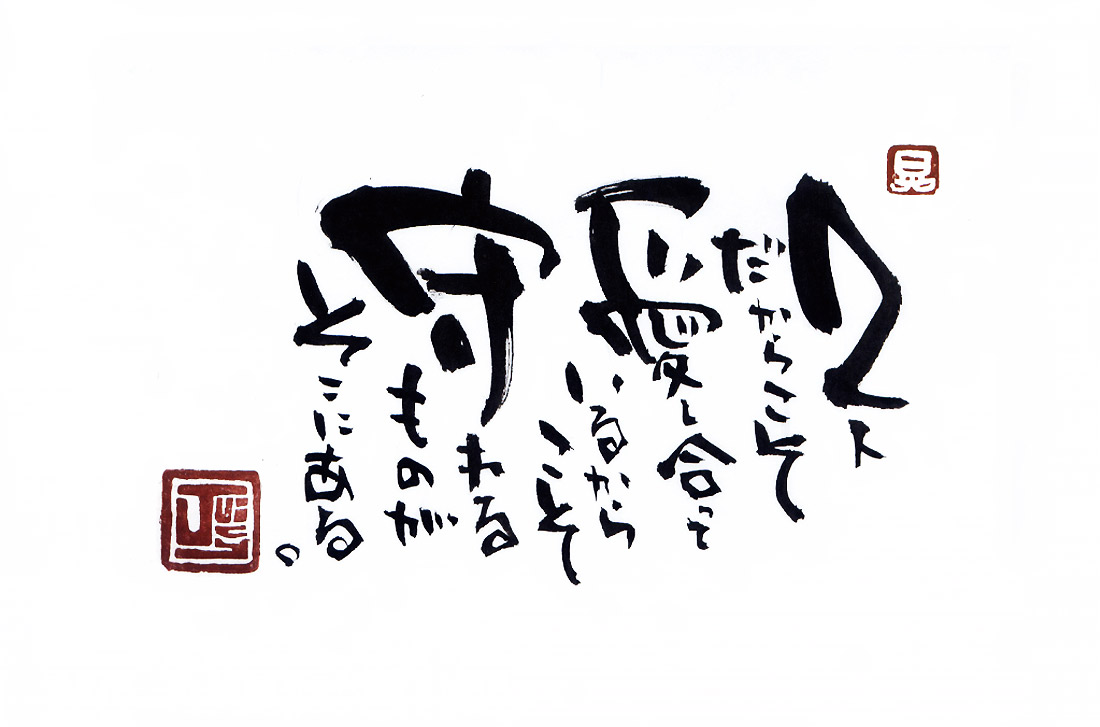 晃
2人
だからこそ
愛し合って
いるから
こそ
守れる
ものが
そこにある。